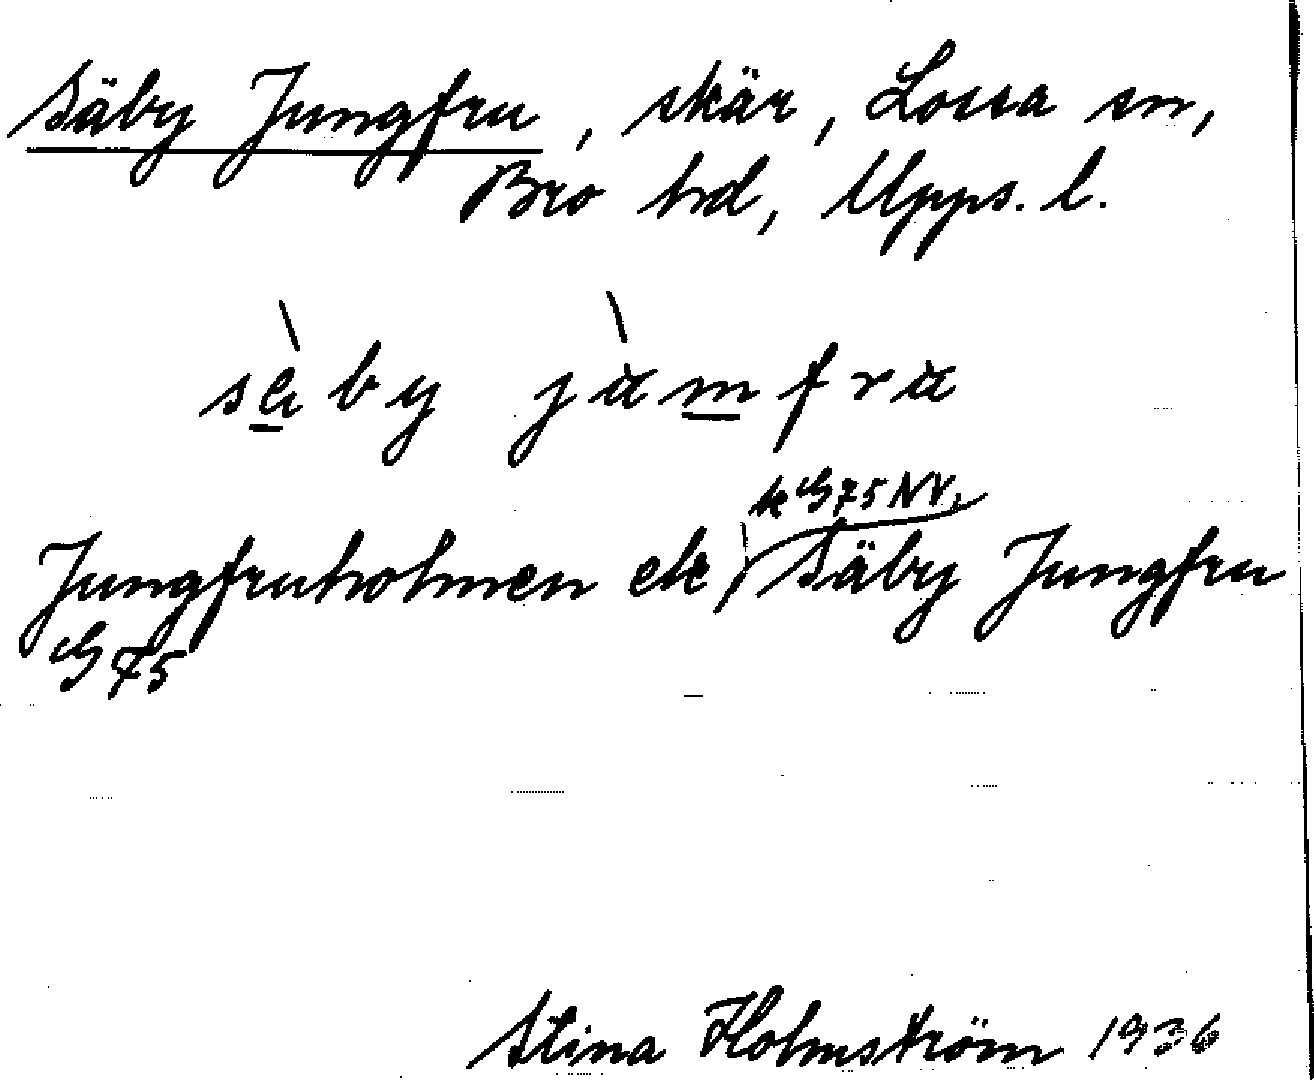 Säby Jungfru, skär, Lossa sn,
Bro hd, Upps. l.
säby jamfra
k G 75 NV.
Jungfruholmen ek, Säby Jungfru
G 75
Stina Holmström 1936